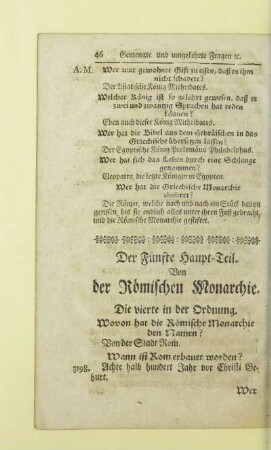 46 Gemengte und umgekehrte Fragen ꝛc.
A. M. Wer war gewohnet Gift zu essen, daß es ihm
nicht schadete?
Der Asiatische König Mithridates.
Welcher König ist so gelehrt gewesen, daß er
zwei und zwantzig Sprachen hat reden
können?
Eben auch dieser König Mithridates.
Wer hat die Bibel aus dem Hebräischen in das
Griechische übersetzen lassen?
Der Egyptische König Ptolomäus Philadelphus.
Wer hat sich das Leben durch eine Schlange
genommen?
Cleopatra, die letzte Königin in Egypten.
Wer hat die Griechische Monarchie
ruiniret?
Die Römer, welche nach und nach ein Stück davon
gerissen, bis sie endlich alles unter ihren Fuß gebracht,
und die Römische Monarchie gestiftet.
Der Fünfte Haupt-Teil.
Von
der Römischen Monarchie.
Die vierte in der Ordnung.
Wovon hat die Römische Monarchie
den Namen?
Von der Stadt Rom.
Wann ist Rom erbauet worden?
3198. Achte halb hundert Jahr vor Christi Ge-
burt.
Wer